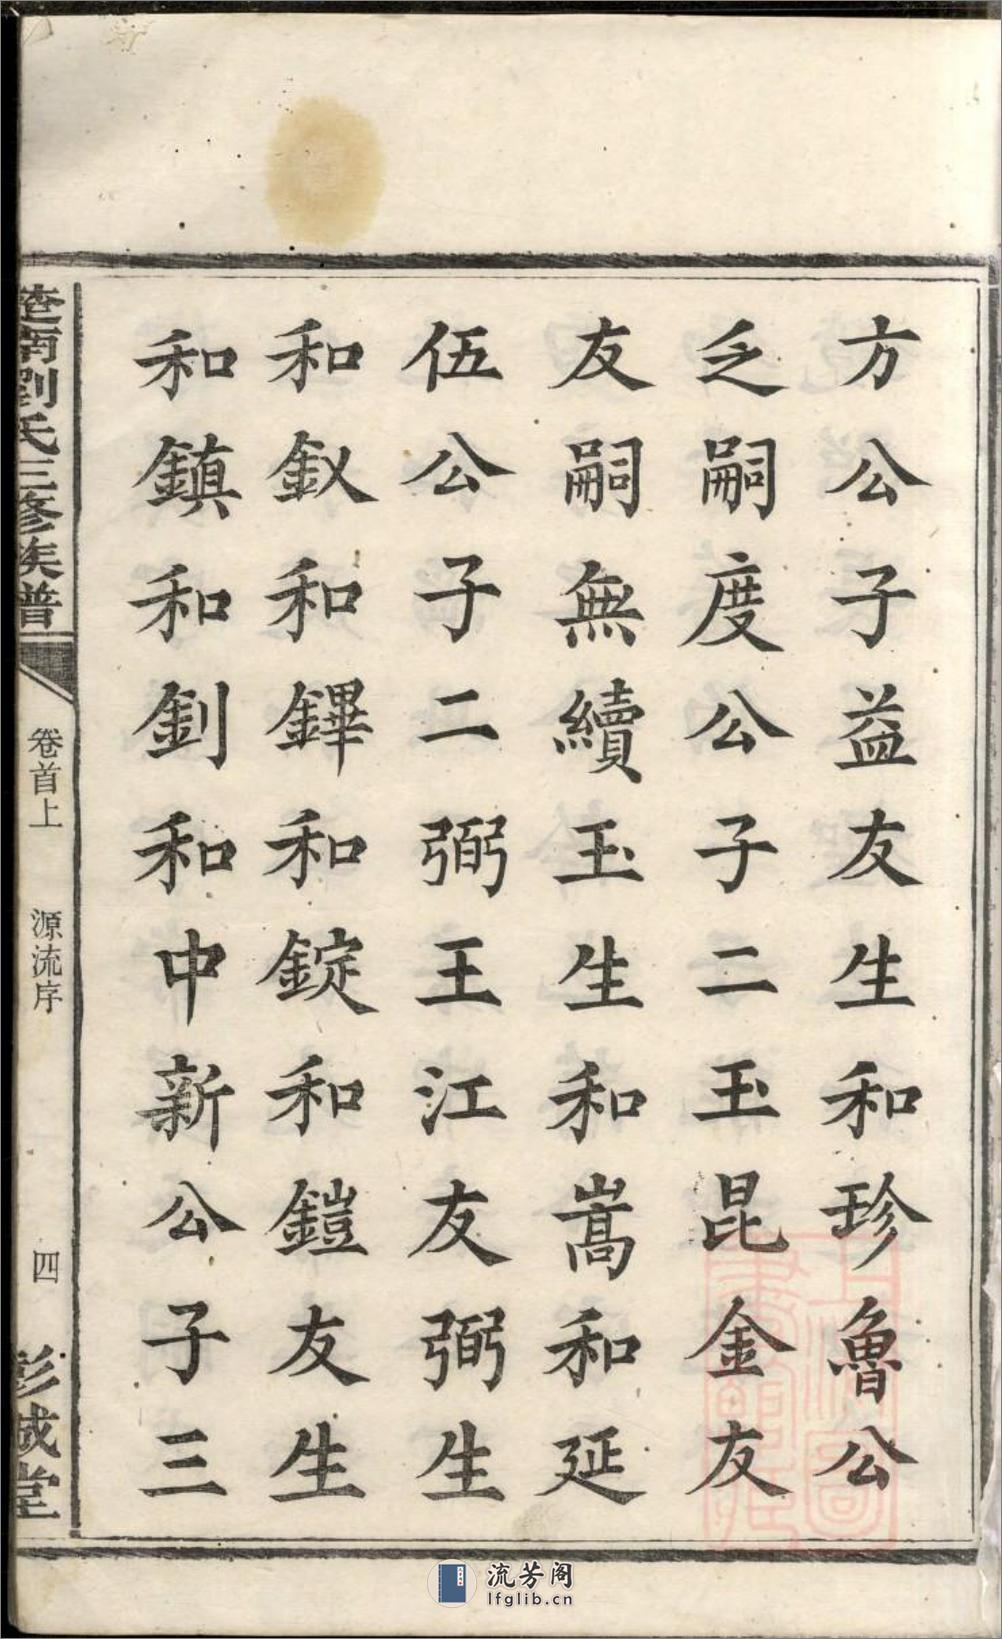 方公子益友生和珍魯公
乏嗣度公子二玉昆金友
友嗣無續玉生和嵩和延
伍公子二弼王江友弼生
和釵和鏎和錠和鎧友生
和鎮和釗和中新公子三
楚南劉氏三修族譜
卷首上
源流序
四
彭城堂
流芳阁
lfglib.cn